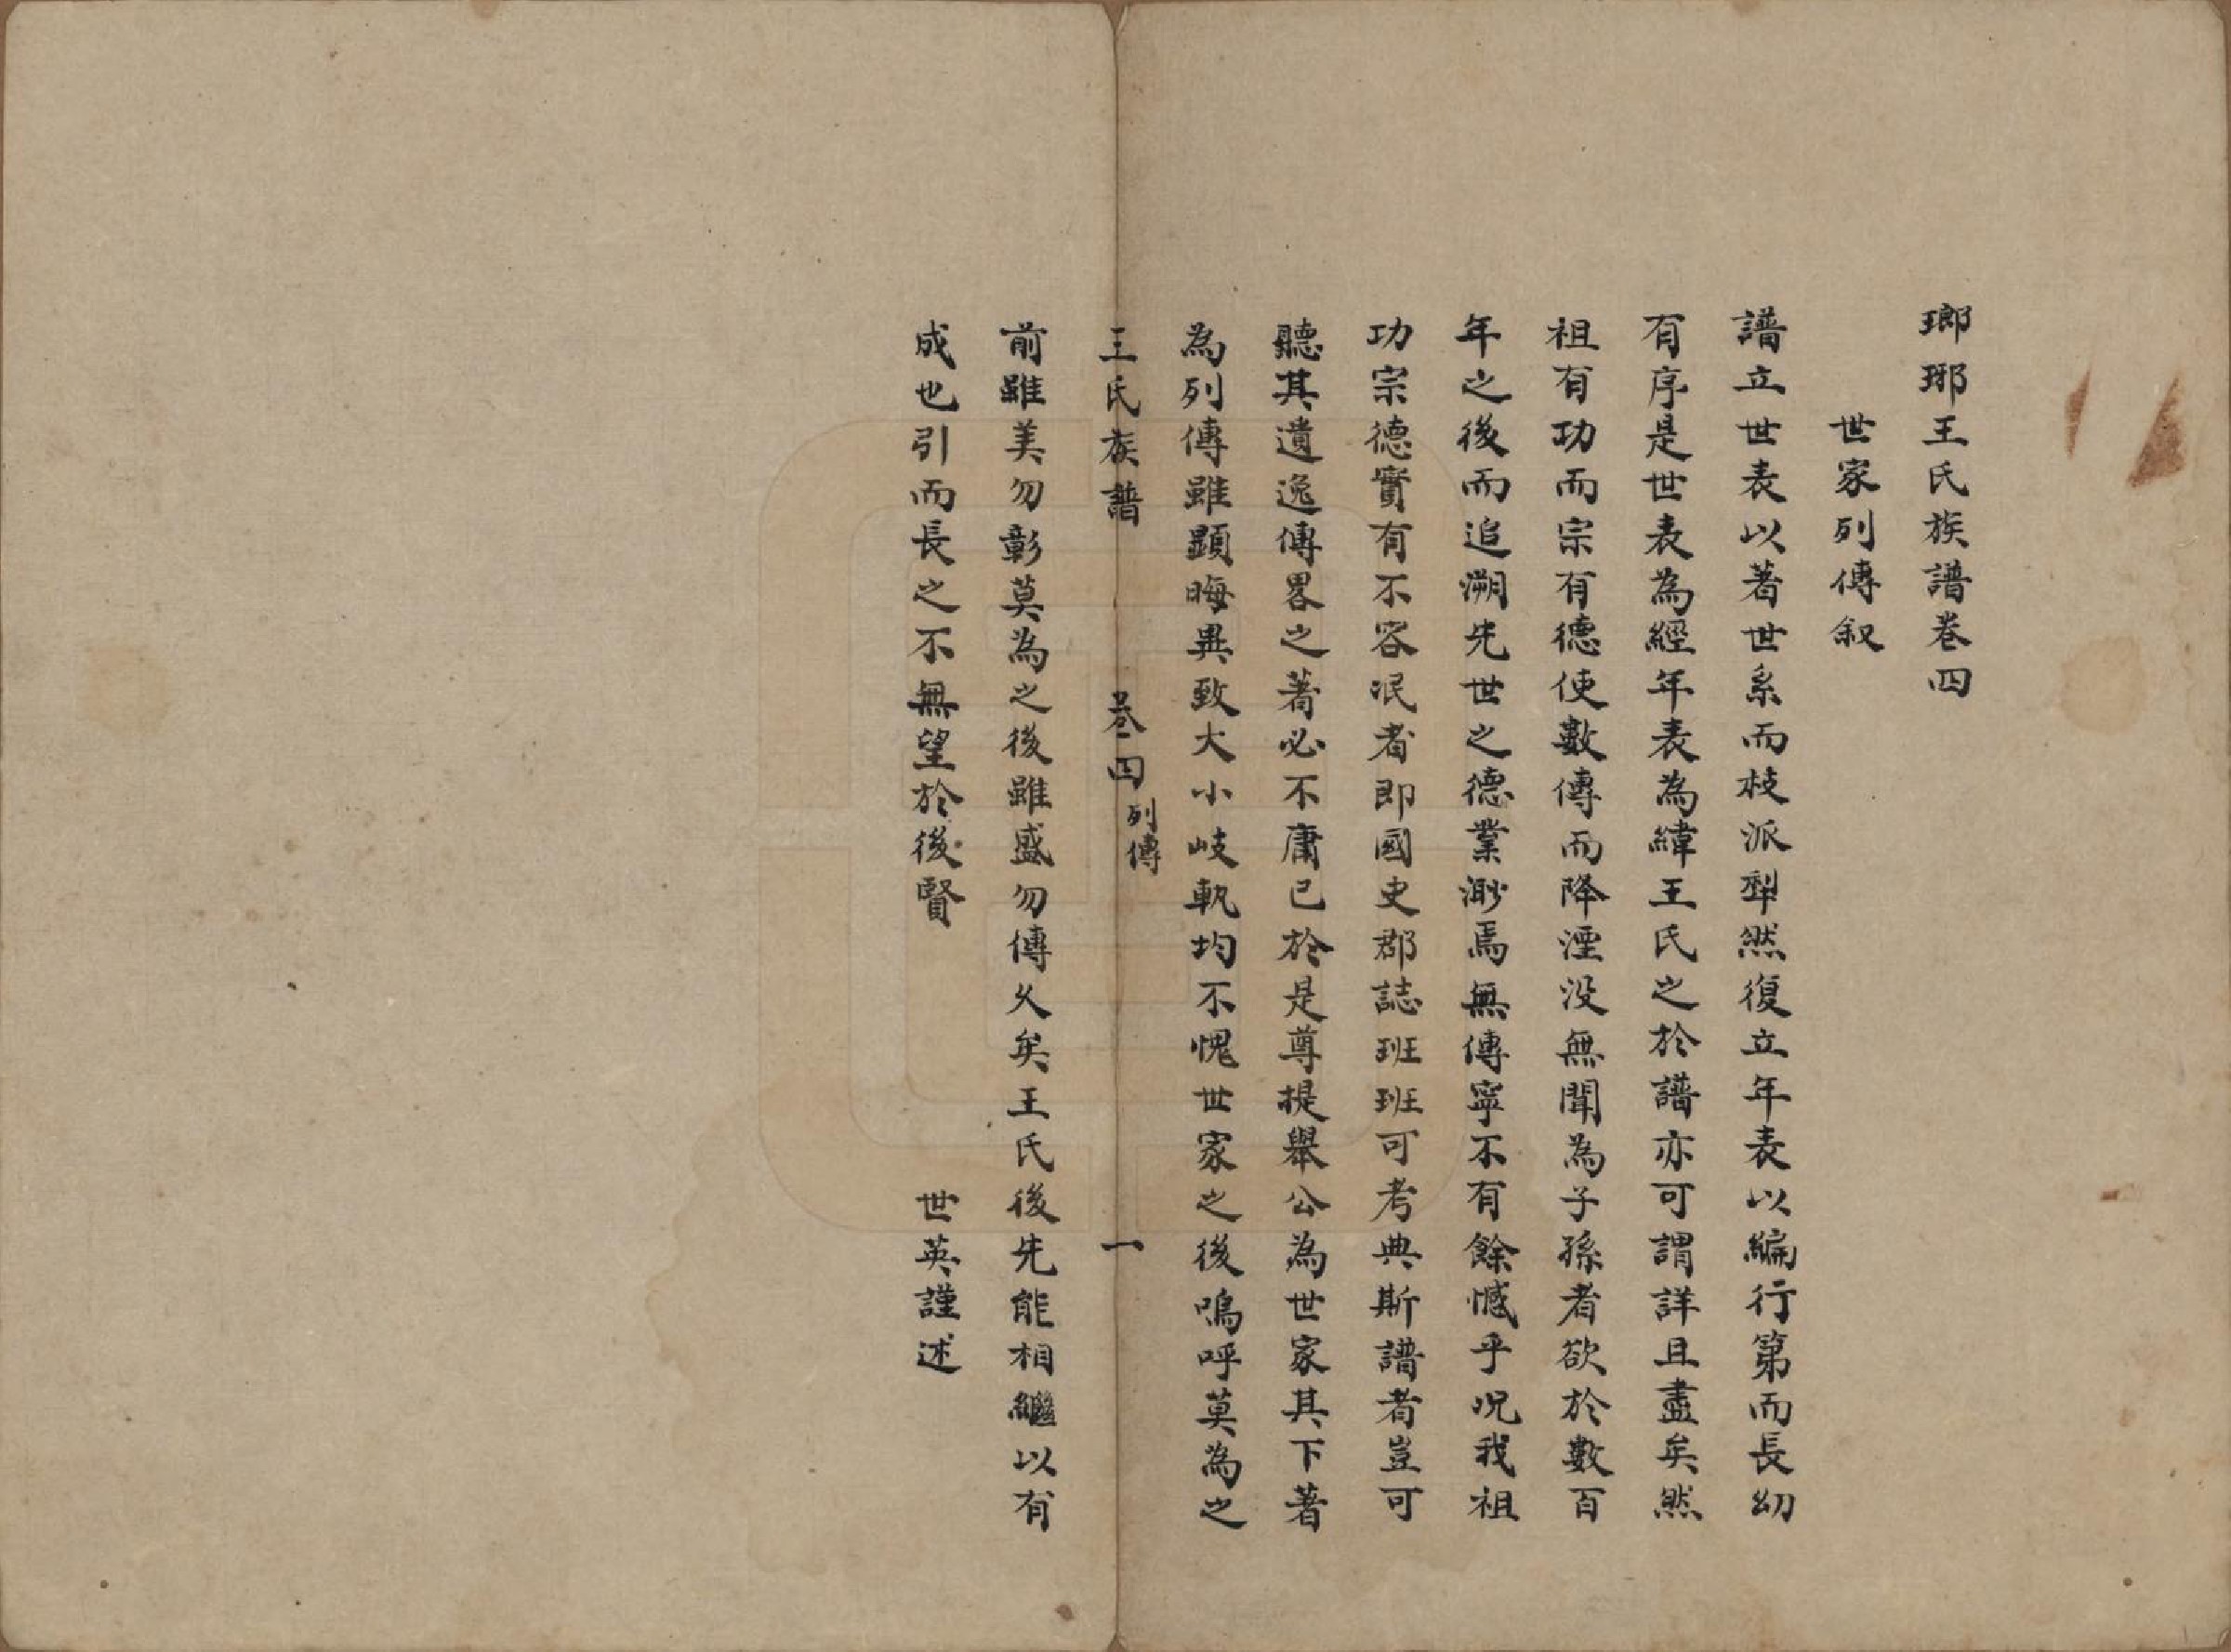 瑯琊王氏族譜卷四
世家列傳叙
譜立世表以著世系而枝派犁然復立年表以編行第而長幼
有序是世表為經年表為緯王氏之於譜亦可謂詳且盡矣然
祖有功而宗有德使數傳而降湮没無聞為子孫者欲於數百
年之後而追溯先世之德業渺焉無傳寧不有餘憾乎况我祖
功宗德實有不容泯者即國史郡誌班班可考典斯譜者豈可
聽其遺逸傳畧之著必不庸已於是尊提舉公為世家其下著
為列傳雖顯晦異致大小岐軌均不愧世家之後嗚呼莫為之
王氏族譜 卷四 列傳 一
前雖美勿彰莫為之後雖盛勿傳久矣王氏後先能相繼以有
成也引而長之不無望於後賢 世英謹述